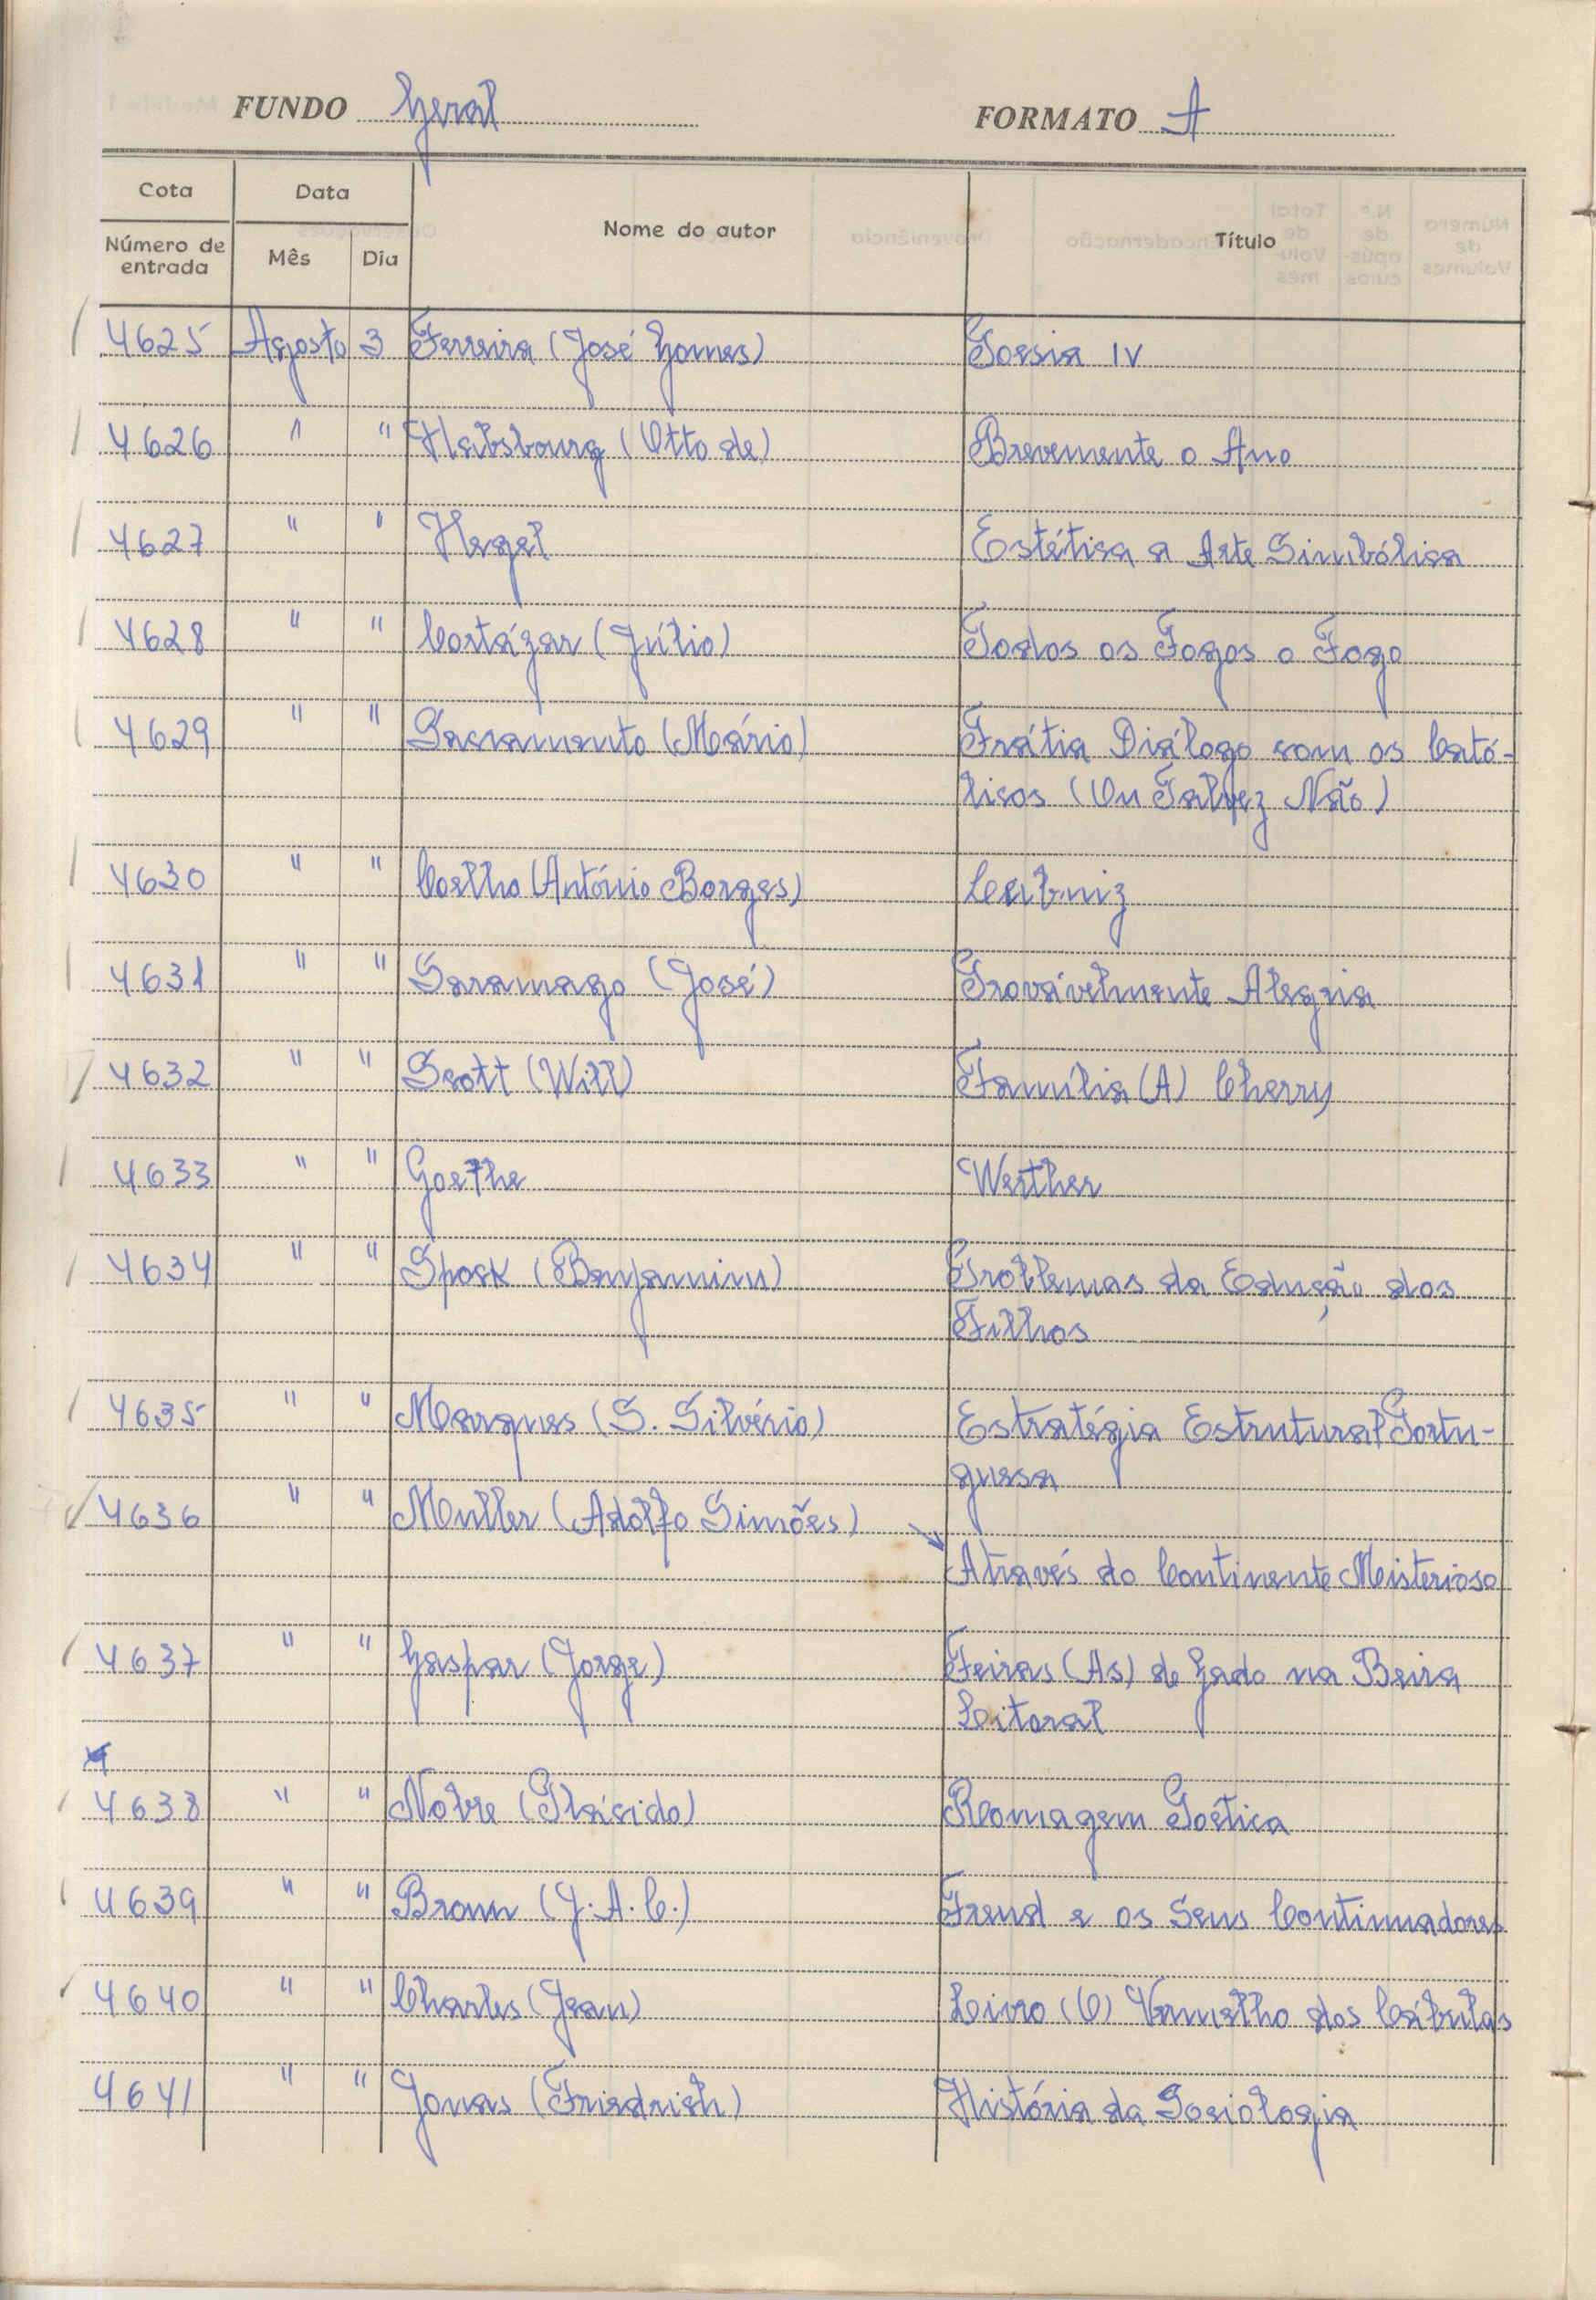 FUNDO Geral FORMATO A
Cota Data Nome do autor Título
Número de entrada Mês Dia
4625 Agosto 3 Ferreira (José Gomes) Poesia IV
4626 " " Habsbourg (Otto de) Brevemente o Ano
4627 " " Hegel Estética a Arte Simbólica
4628 " " Cortázar (Júlio) Todos os Fogos o Fogo
4629 " " Sacramento (Mário) Frátia Diálogo com os Cató-
licos (Ou Talvez Não)
4630 " " Coelho (António Borges) Leibniz
4631 " " Saramago (José) Provávelmente Alegria
4632 " " Scott (Will) Família (A) Cherry
4633 " " Goethe Werther
4634 " " Spock (Benjamim) Problemas da Edução dos
Filhos
4635 " " Marques (S. Silvério) Estratégia Estrutural Portu-
guesa
4636 " " Muller (Adolfo Simões)
Através do Continente Misterioso
4637 " " Gaspar (Jorge) Feiras (As) de Gado na Beira
Litoral
4638 " " Nobre (Plácido) Romagem Poética
4639 " " Brown (J. A. C.) Freud e os Seus Continuadores
4640 " " Charles (Jean) Livro (O) Vermelho dos Cábulas
4641 " " Jonas (Friedrich) História da Sociologia